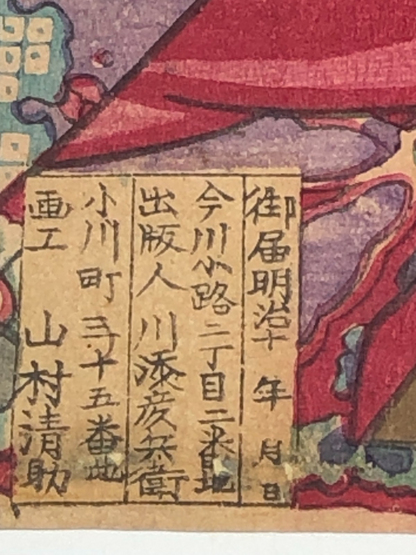 御届明治十 年 月 日
今川小路二丁目二番地
出版人 川添彦兵衛
小川町三十五番地
画工 山村清助